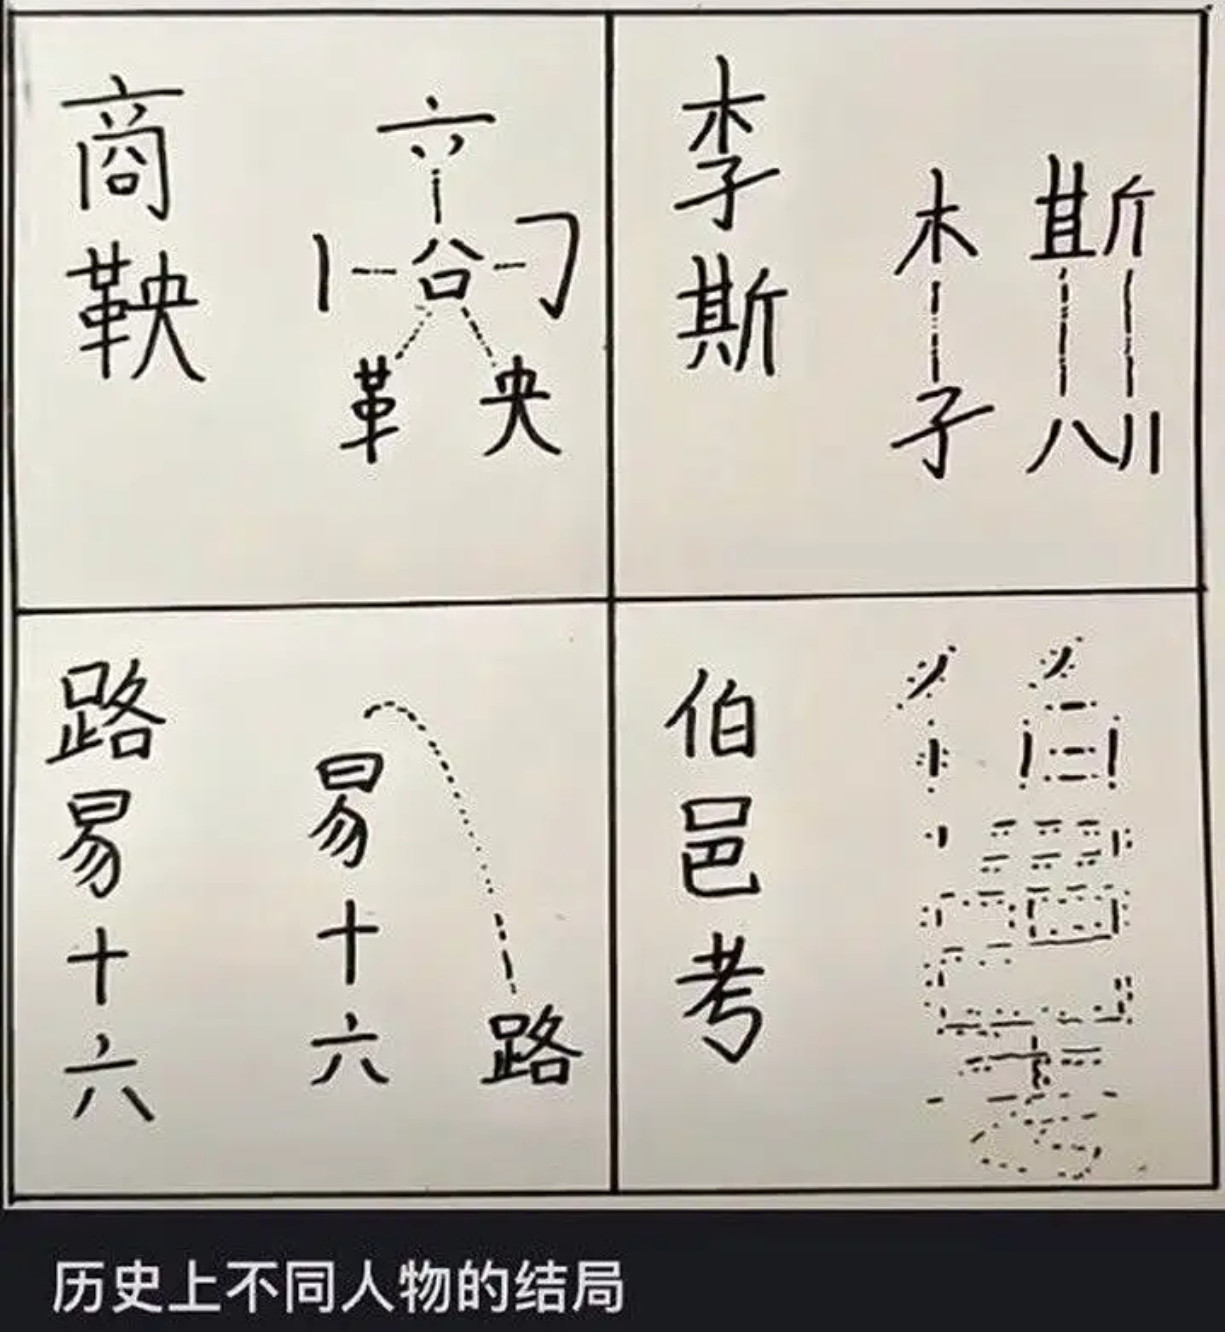 商鞅
六
丨 㕣 刁
革 央
李斯
木 斯
子 八 川
路易十六
易十六
路
伯邑考
历史上不同人物的结局